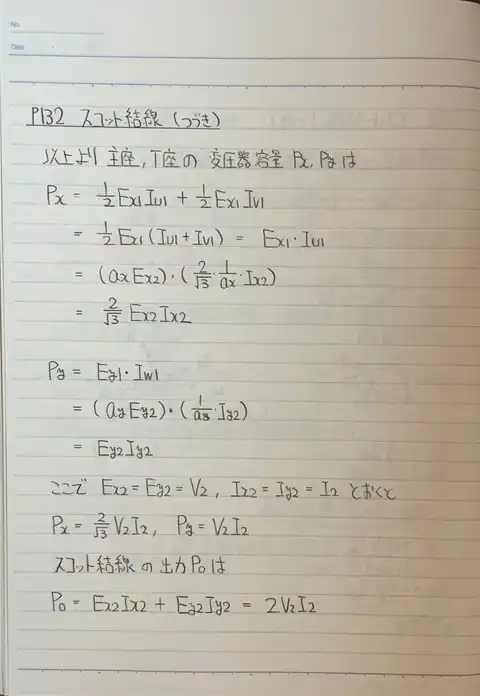 No.
Date
P132 スコット結線 (つづき)
以上より 主座, T座の 変圧器容量 Px, Py は
Px = 1/2 Ex1 Iu1 + 1/2 Ex1 Iv1
= 1/2 Ex1 (Iu1 + Iv1) = Ex1・Iu1
= (ax Ex2)・(2/√3・1/ax・Ix2)
= 2/√3 Ex2 Ix2
Py = Ey1・Iw1
= (ay Ey2)・(1/ay・Iy2)
= Ey2 Iy2
ここで Ex2 = Ey2 = V2, Ix2 = Iy2 = I2 とおくと
Px = 2/√3 V2 I2, Py = V2 I2
スコット結線 の 出力 Po は
Po = Ex2 Ix2 + Ey2 Iy2 = 2 V2 I2